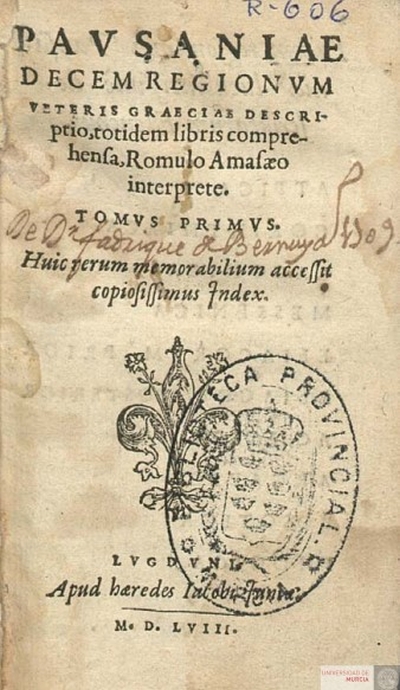 R-606
PAVSANIAE
DECEM REGIONVM
VETERIS GRAECIAE DESCRI-
ptio, totidem libris compre-
hensa, Romulo Amasæo
interprete.
TOMVS PRIMVS.
De Dⁿ fadrique de Bernuy
Huic rerum memorabilium accessit
copiosissimus Index.
BIBLIOTECA PROVINCIAL
MURCIA
LVGDVNI
Apud hæredes Iacobi Iuntæ.
M. D. LVIII.
UNIVERSIDAD DE
MURCIA